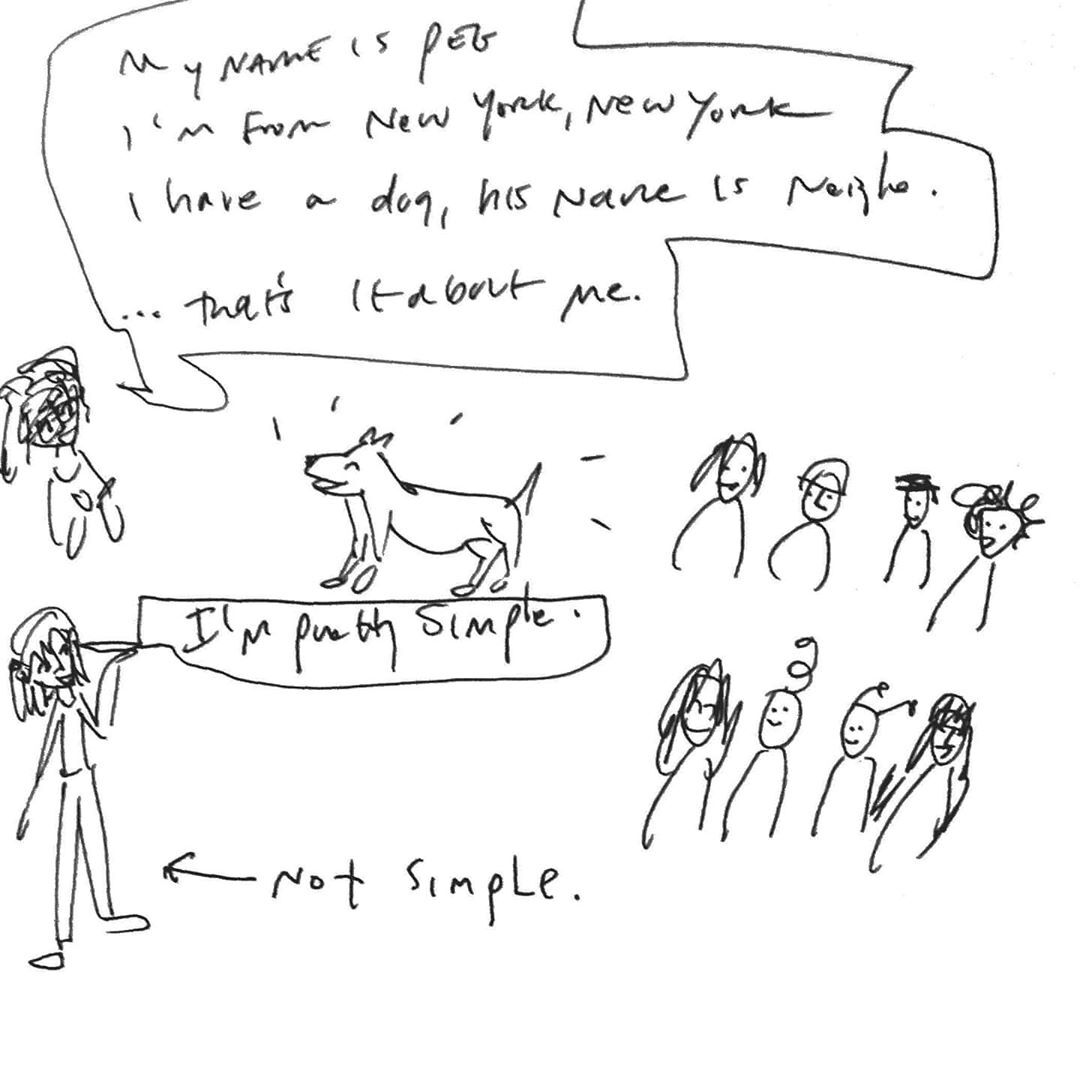 My NAME is PEG
I'm From New York, New York
I have a dog, his name is
... that's it about me.
I'm pretty simple.
← Not simple.